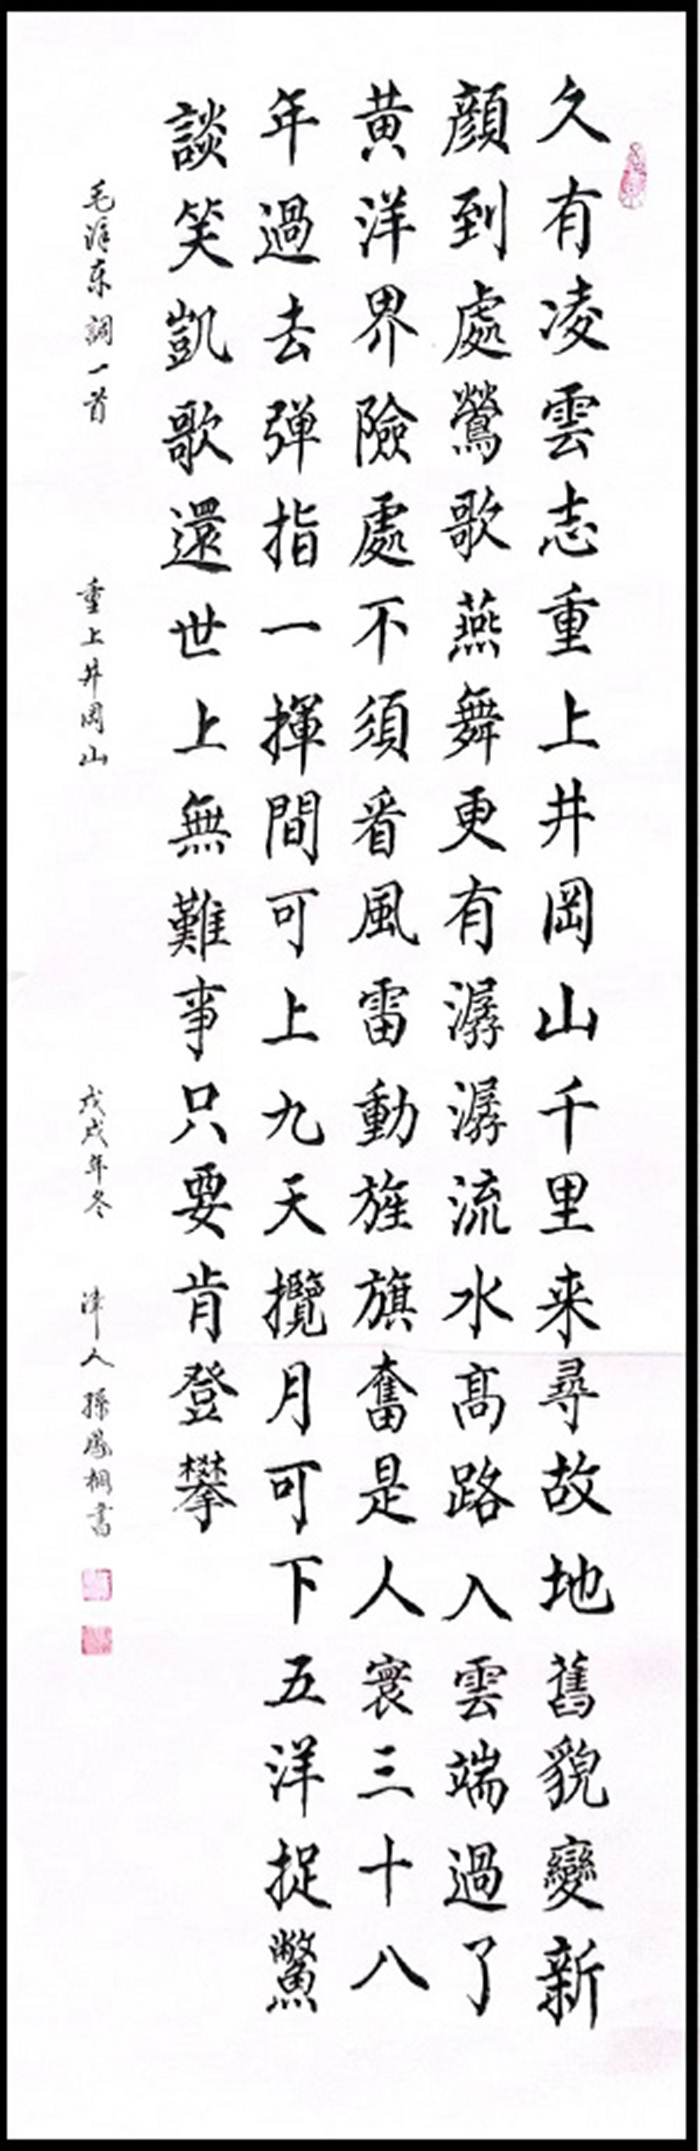 久有凌雲志重上井岡山千里来尋故地舊貌變新
顔到處鶯歌燕舞更有潺潺流水髙路入雲端過了
黄洋界險處不須看風雷動旌旗奮是人寰三十八
年過去弹指一揮間可上九天攬月可下五洋捉鱉
談笑凱歌還世上無難事只要肯登攀
毛泽东詞一首 重上井岡山 戊戌年冬 津人孫鳳桐書